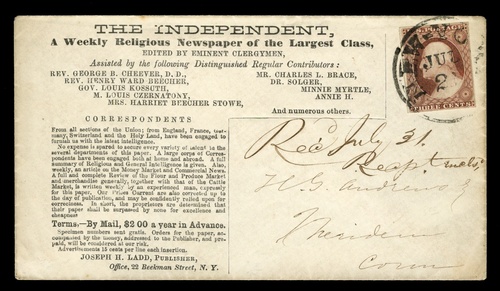 THE INDEPENDENT,
A Weekly Religious Newspaper of the Largest Class,
EDITED BY EMINENT CLERGYMEN,
Assisted by the following Distinguished Regular Contributors:
REV. GEORGE B. CHEEVER, D. D.,
REV. HENRY WARD BEECHER,
GOV. LOUIS KOSSUTH,
M. LOUIS CZERNATONY,
MRS. HARRIET BEECHER STOWE,
MR. CHARLES L. BRACE,
DR. SOLGER,
MINNIE MYRTLE,
ANNIE H.
And numerous others.
CORRESPONDENTS
From all sections of the Union; from England, France, Ger-
many, Switzerland and the Holy Land, have been engaged to
furnish us with the latest intelligence.
No expense is spared to secure every variety of talent to the
several departments of this paper. A large corps of Corres-
pondents have been engaged both at home and abroad. A full
summary of Religious and General Intelligence is given. Also,
weekly, an article on the Money Market and Commercial News.
A full and complete Review of the Flour and Produce Market
and merchandise generally, together with that of the Cattle
Market, is written weekly by an experienced man, expressly
for this paper. Our Prices Current are also corrected up to
the day of publication, and may be confidently relied upon for
correctness. In short, the proprietors are determined that
their paper shall be surpassed by none for excellence and
cheapness
Terms:—By Mail, $2 00 a year in Advance.
Specimen numbers sent gratis. Orders for the paper, ac-
companied by the money, addressed to the Publisher, and pre-
paid, will be considered at our risk.
Advertisements 15 cents per line each insertion.
JOSEPH H. LADD, PUBLISHER,
Office, 22 Beekman Street, N. Y.
NEW
JUL
2
THREE CENTS
Recd July 31
Meriden
Conn